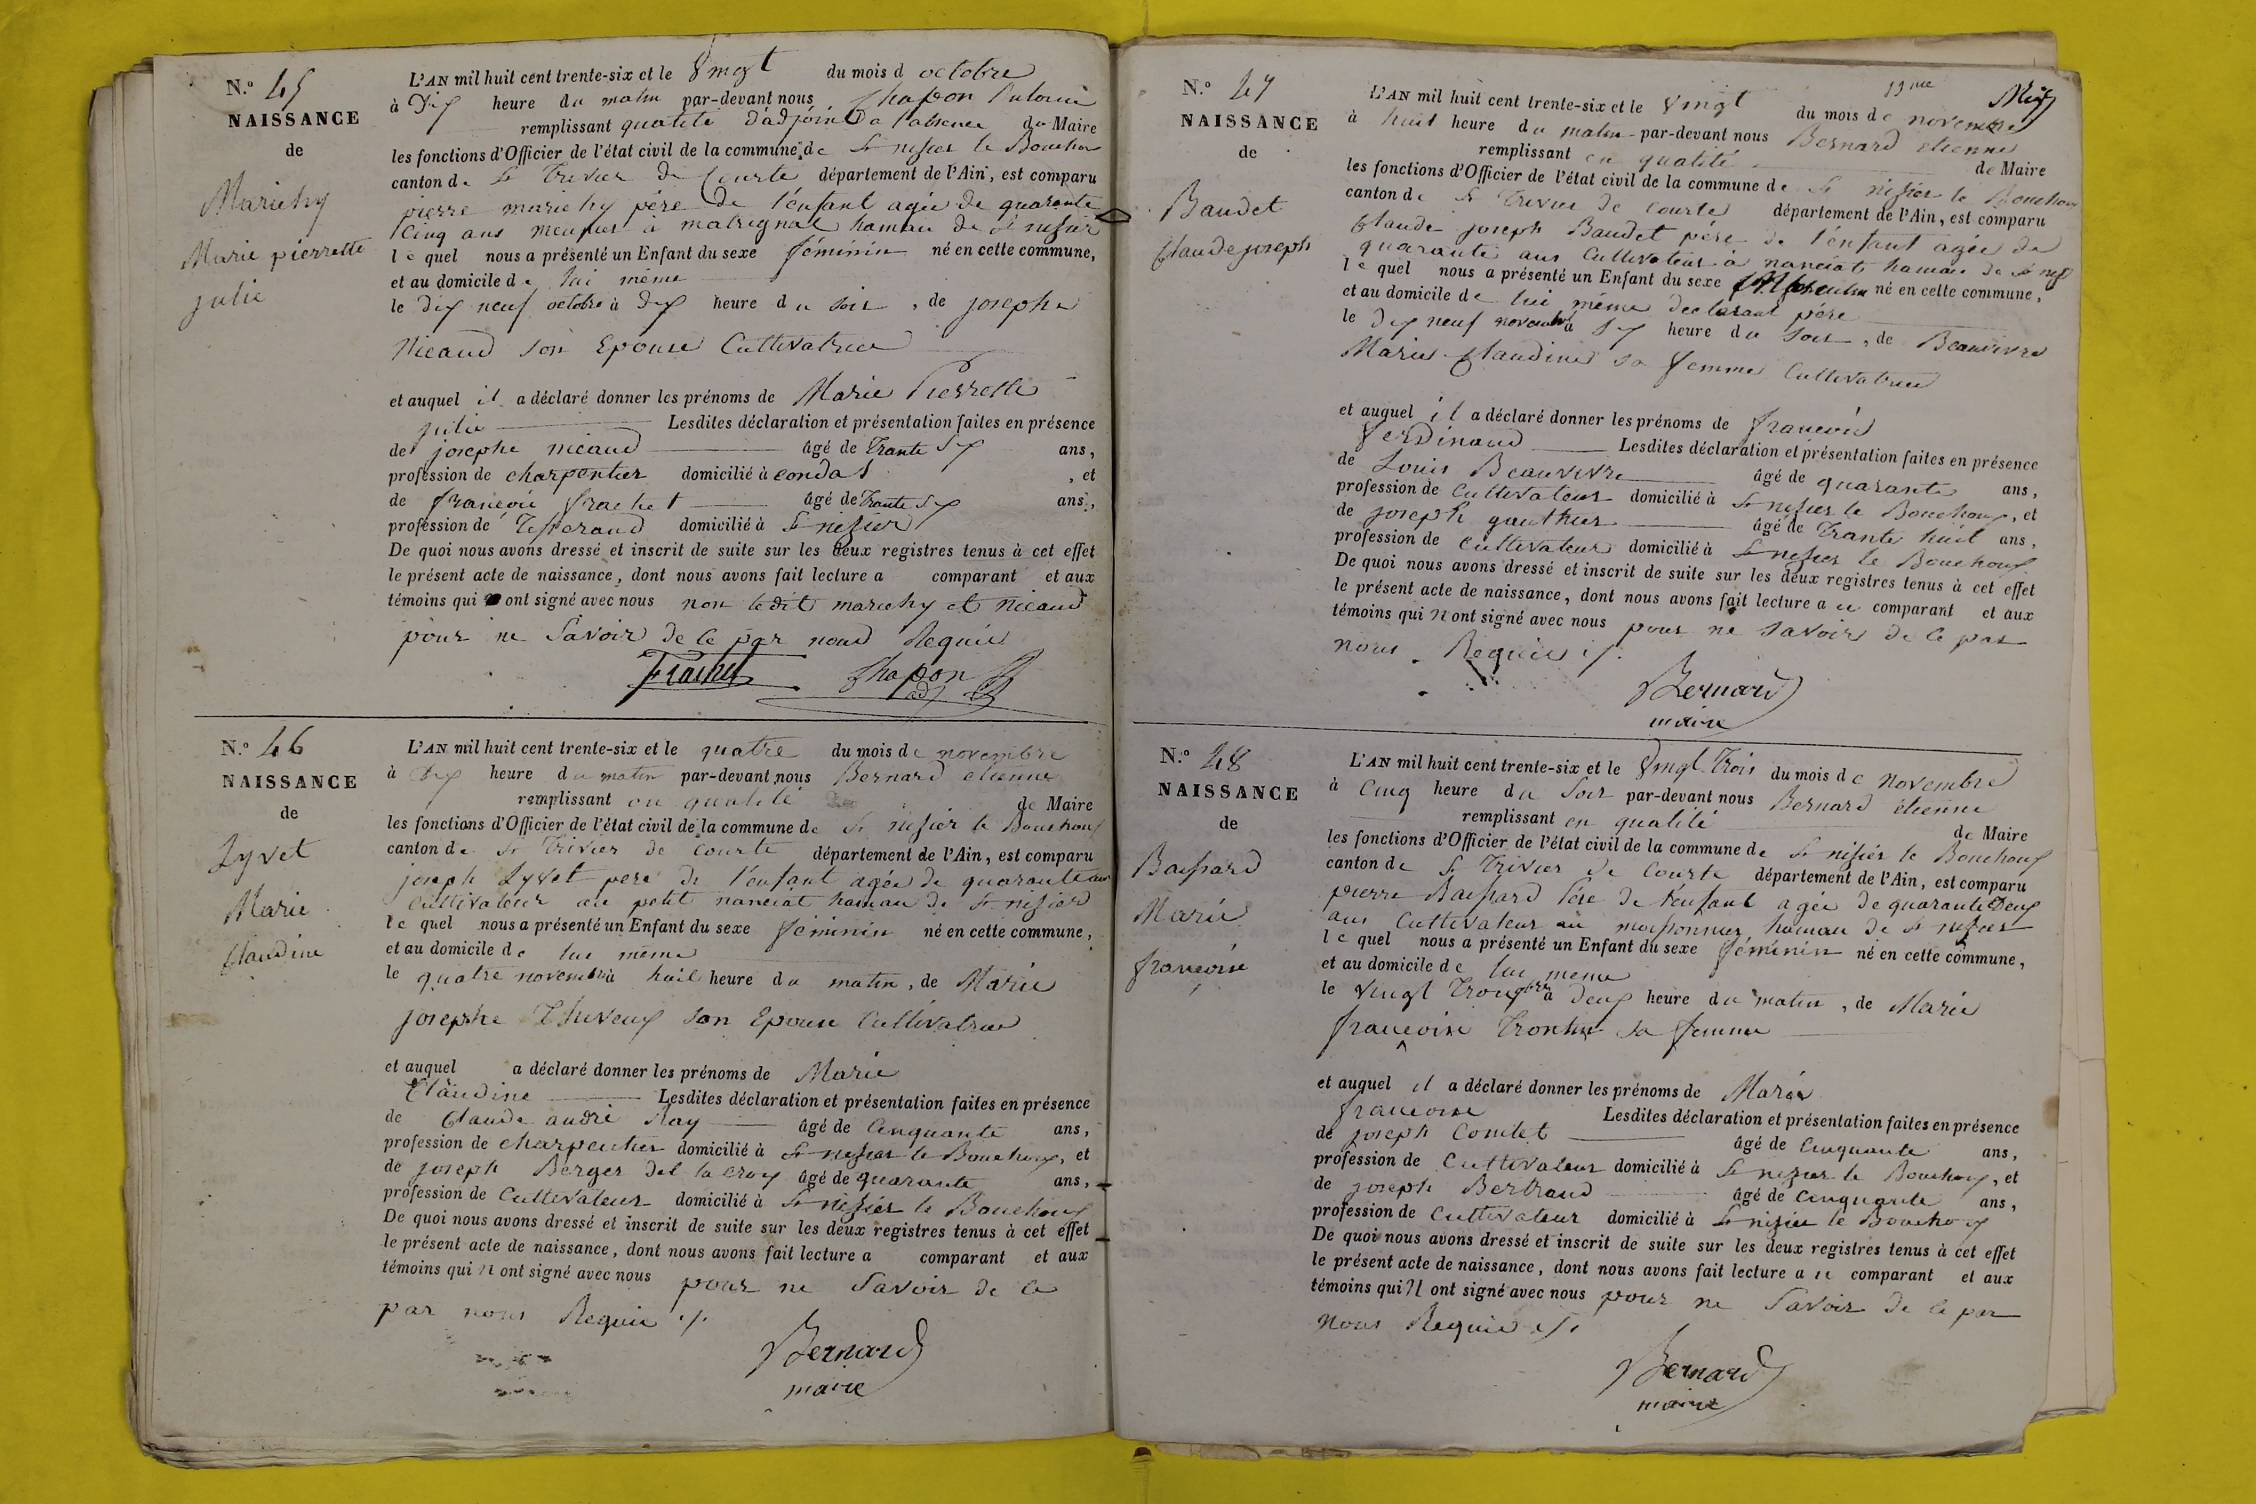 N.º 45
NAISSANCE
de
Marichy
Marie pierrette
julie
L'AN mil huit cent trente-six et le vingt du mois d octobre
à Dix heure du matin par-devant nous Chapon
remplissant qualité d'adjoint a l'absence du Maire
les fonctions d'Officier de l'état civil de la commune de St nisier le Bouchoux
canton de St Trivier de Courte département de l'Ain, est comparu
pierre marichy père de l'enfant agée de quarante
Cinq ans à hamau de st nisier
le quel nous a présenté un Enfant du sexe féminin né en cette commune,
et au domicile de lui même
le dix neuf octobre à dix heure du soir, de josephe
Nicaud son Epouse Cultivatrice
et auquel il a déclaré donner les prénoms de Marie Pierrette
julie Lesdites déclaration et présentation faites en présence
de josephe nicaud âgé de Trante six ans,
profession de charpentier domicilié à condal, et
de françois frachet âgé de Trante six ans,
profession de Tisserand domicilié à St nizier
De quoi nous avons dressé et inscrit de suite sur les deux registres tenus à cet effet
le présent acte de naissance, dont nous avons fait lecture a comparant et aux
témoins qui ont signé avec nous non ledit marichy et nicaud
pour ne Savoir de ce par nous Requis
Frachet Chapon
adj
N.º 46
NAISSANCE
de
Lyvet
Marie
Claudine
L'AN mil huit cent trente-six et le quatre du mois de novembre
à Dix heure du matin par-devant nous Bernard etienne
remplissant en qualité de Maire
les fonctions d'Officier de l'état civil de la commune de St nisier le Bouchoux
canton de St Trivier de Courte département de l'Ain, est comparu
joseph Lyvet pere de l'enfant agée de quarante ans
cultivateur au petit nanciat hamau de St nisier
le quel nous a présenté un Enfant du sexe féminin né en cette commune,
et au domicile de lui même
le quatre novembre à huit heure du matin, de Marie
josephe Thuveux son Epouse Cultivatrice
et auquel a déclaré donner les prénoms de Marie
Claudine Lesdites déclaration et présentation faites en présence
de Claude andré âgé de Cinquante ans,
profession de charpentier domicilié à St nisier le Bouchoux, et
de joseph Berger dit la croix âgé de quarante ans,
profession de Cultivateur domicilié à St nisier le Bouchoux
De quoi nous avons dressé et inscrit de suite sur les deux registres tenus à cet effet
le présent acte de naissance, dont nous avons fait lecture a comparant et aux
témoins qui n ont signé avec nous pour ne Savoir de ce
par nous Requis ./.
Bernard
maire
13me
N.º 47
NAISSANCE
de
Baudet
Claude joseph
L'AN mil huit cent trente-six et le vingt du mois de novembre
à huit heure du matin par-devant nous Bernard etienne
remplissant en qualité de Maire
les fonctions d'Officier de l'état civil de la commune de St nisier le Bouchoux
canton de St Trivier de Courte département de l'Ain, est comparu
Claude joseph Baudet père de l'enfant agée de
quarante ans Cultivateur à nanciat hamau de St nisi
le quel nous a présenté un Enfant du sexe Masculin né en cette commune,
et au domicile de lui même declarant père
le dix neuf novembre à six heure du soir, de Beauvivre
Marie Claudine sa femme Cultivatrice
et auquel il a déclaré donner les prénoms de françois
ferdinand Lesdites déclaration et présentation faites en présence
de Louis Beauvivre âgé de quarante ans,
profession de Cultivateur domicilié à St nisier le Bouchoux, et
de joseph gauthier âgé de Trante huit ans,
profession de cultivateur domicilié à St nisier le Bouchoux
De quoi nous avons dressé et inscrit de suite sur les deux registres tenus à cet effet
le présent acte de naissance, dont nous avons fait lecture a ce comparant et aux
témoins qui n ont signé avec nous pour ne savoir de ce par
nous Requis ./.
Bernard
maire
N.º 48
NAISSANCE
de
Bassard
Marie
françoise
L'AN mil huit cent trente-six et le vingt Trois du mois de novembre
à Cinq heure du Soir par-devant nous Bernard etienne
remplissant en qualité de Maire
les fonctions d'Officier de l'état civil de la commune de St nisier le Bouchoux
canton de St Trivier de Courte département de l'Ain, est comparu
pierre Bassard Père de l'enfant agée de quarante Deux
ans Cultivateur au moissonnier hamau de St nisier
le quel nous a présenté un Enfant du sexe féminin né en cette commune,
et au domicile de lui meme
le vingt Trois à Deux heure du matin, de Marie
françoise sa femme
et auquel il a déclaré donner les prénoms de Marie
françoise Lesdites déclaration et présentation faites en présence
de joseph Comtet âgé de Cinquante ans,
profession de Cultivateur domicilié à St nisier le Bouchoux, et
de joseph Bertrand âgé de Cinquante ans,
profession de Cultivateur domicilié à St nizier le Bouchoux
De quoi nous avons dressé et inscrit de suite sur les deux registres tenus à cet effet
le présent acte de naissance, dont nous avons fait lecture a ce comparant et aux
témoins qui n ont signé avec nous pour ne Savoir de ce par
nous Requis ./.
Bernard
maire